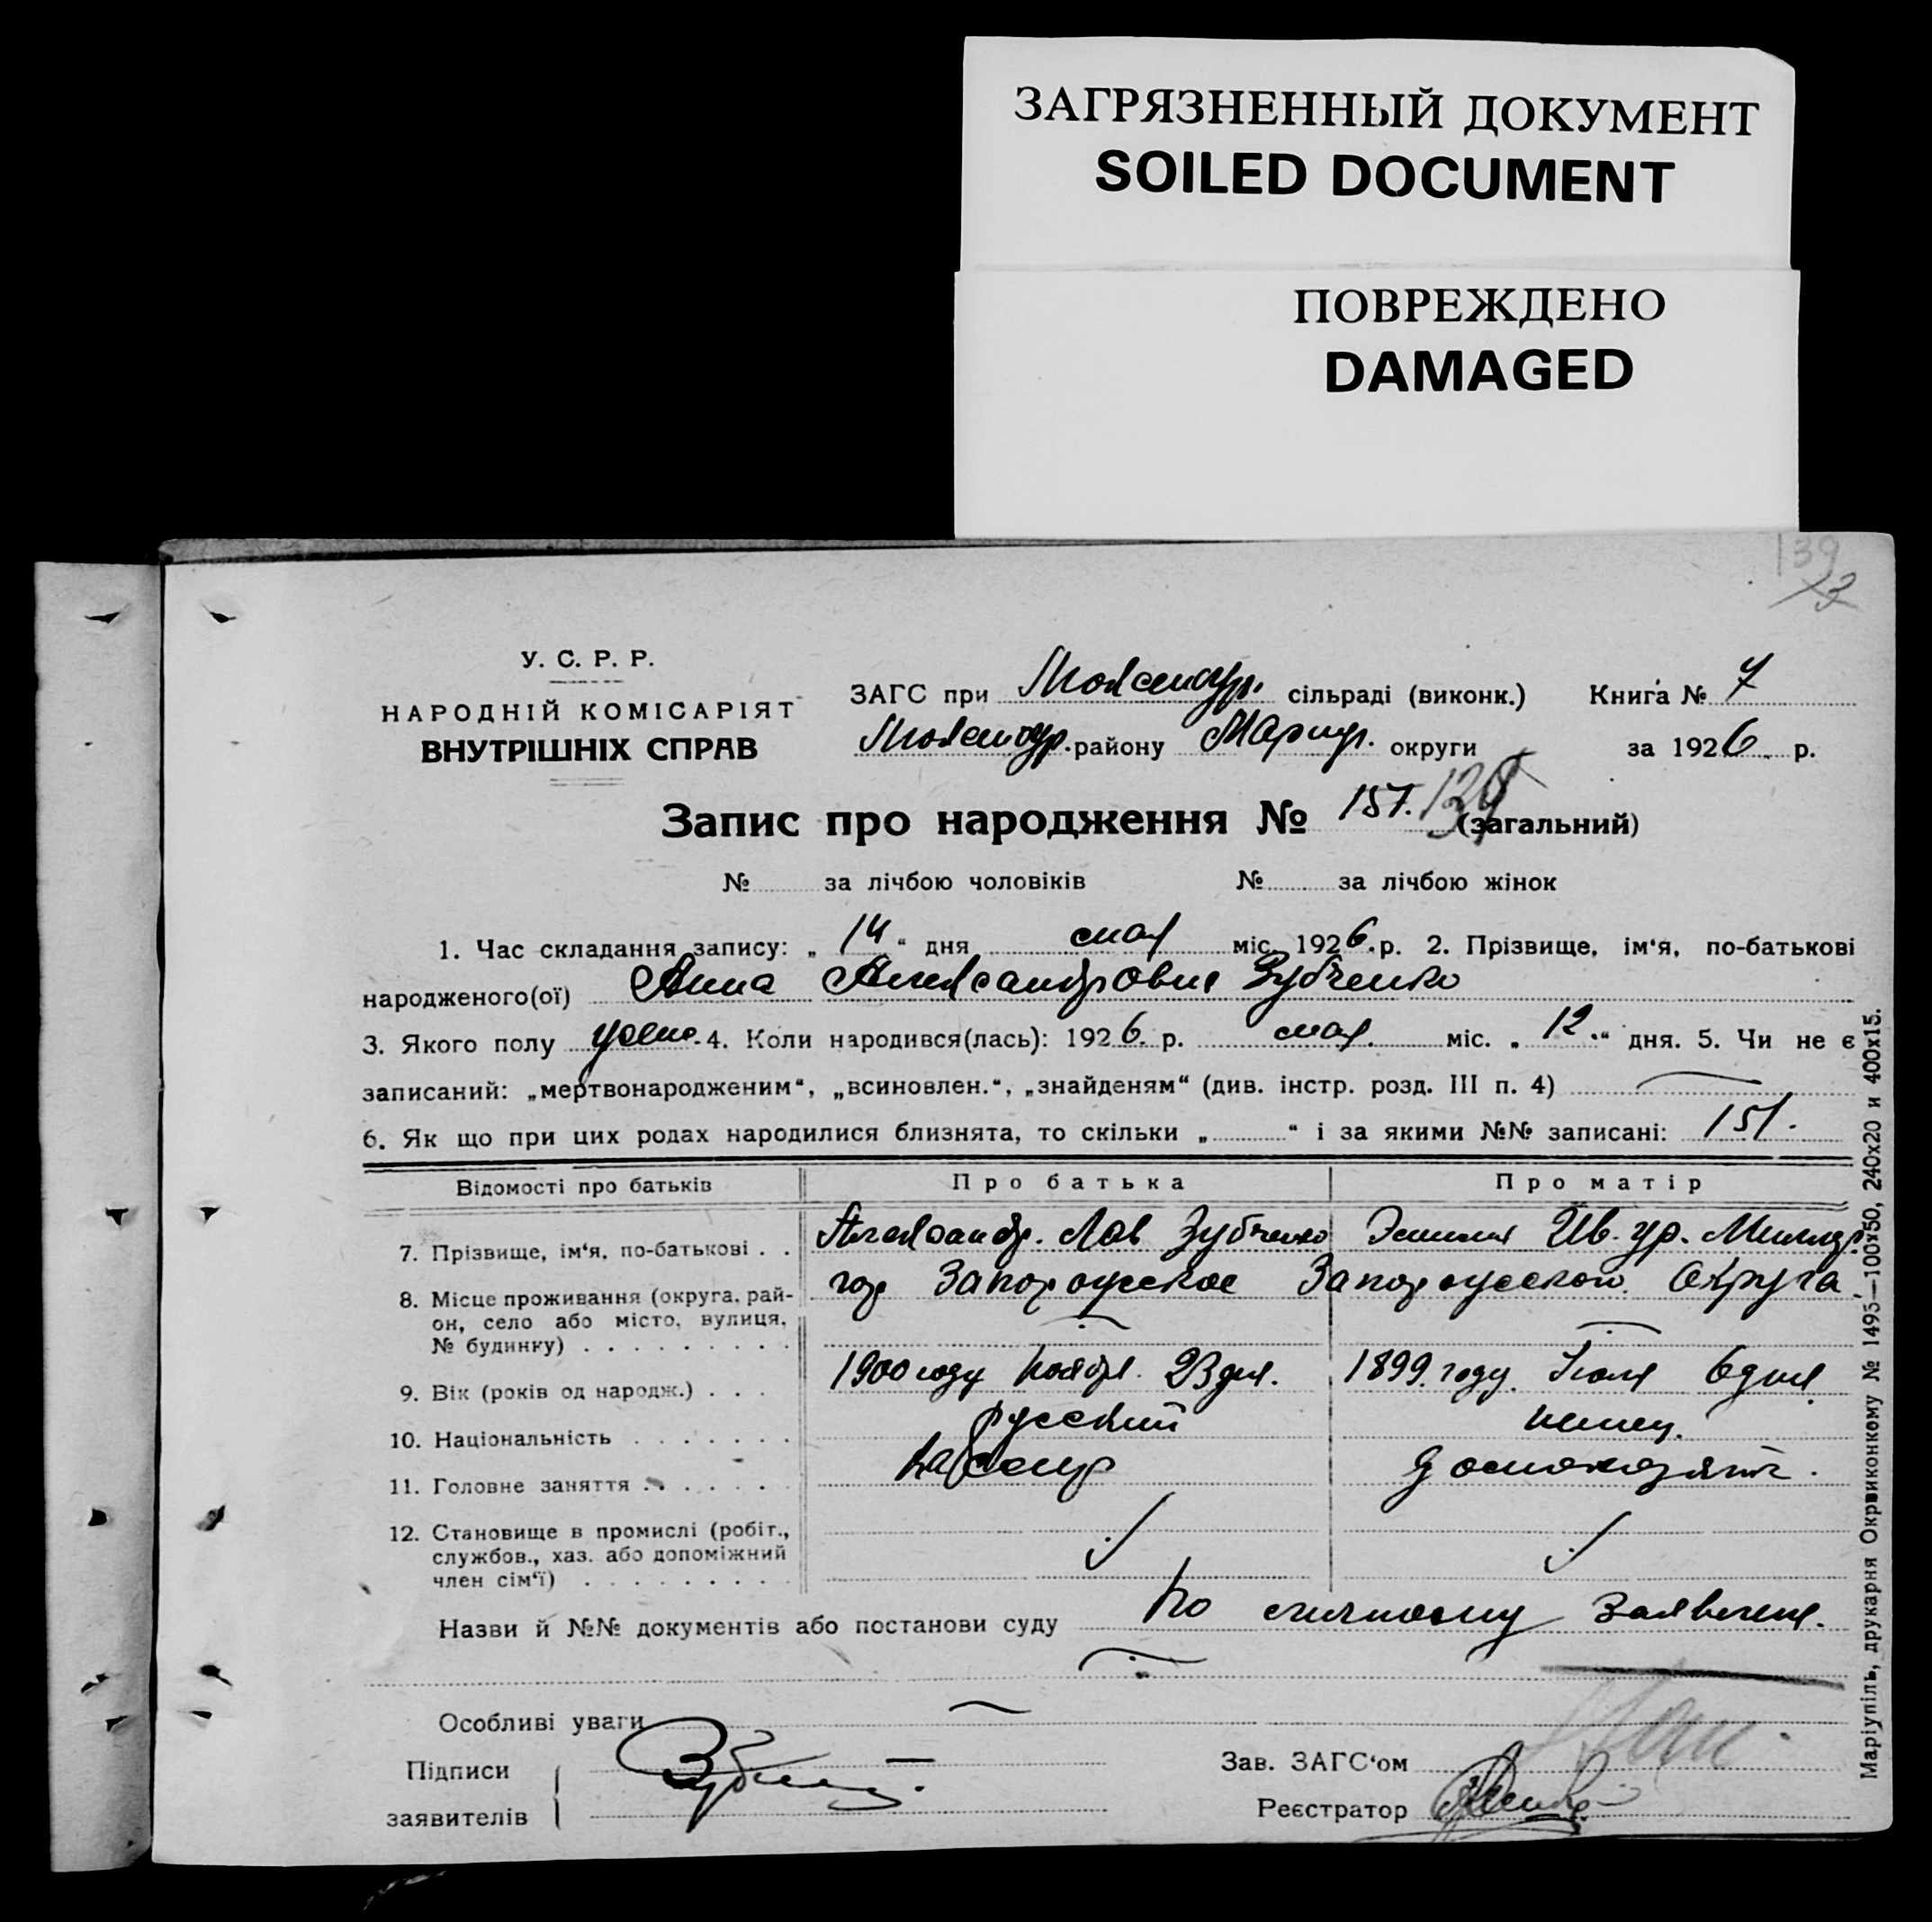 ЗАГРЯЗНЕННЫЙ ДОКУМЕНТ
SOILED DOCUMENT
ПОВРЕЖДЕНО
DAMAGED
139
У. С. Р. Р.
НАРОДНІЙ КОМІСАРІЯТ
ВНУТРІШНІХ СПРАВ
ЗАГС при сільраді (виконк.) Книга № 7
району Мариуп. округи за 1926 р.
Запис про народження № 157. (загальний)
№ за лічбою чоловіків № за лічбою жінок
1. Час складання запису: „ 14 “ дня мая міс. 1926. р. 2. Прізвище, ім‘я, по-батькові
народженого(ої) Анна Александровна Зубченко
3. Якого полу женс. 4. Коли народився(лась): 1926. р. мая. міс. „ 12. “ дня. 5. Чи не є
записаний: „мертвонародженим“, „всиновлен.“, „знайденям“ (див. інстр. розд. III п. 4)
6. Як що при цих родах народилися близнята, то скільки „ “ і за якими №№ записані: 151.
Відомості про батьків Про батька Про матір
7. Прізвище, ім‘я, по-батькові . . Александр. Зубченко Ив. ур. Миллер
8. Місце проживання (округа, рай-
он, село або місто, вулиця,
№ будинку) гор Запорожское Запорожского Округа
9. Вік (років од народж.) . . . 1900 году Ноябр. 23 дня. 1899. году. Июля 6 дня
10. Національність русский немец.
11. Головне заняття Кассир домохозяйк.
12. Становище в промислі (робіт.,
службов., хаз. або допоміжний
член сім‘ї)
Назви й №№ документів або постанови суду По личному заявлению.
Особливі уваги
Підписи
заявителів
Зав. ЗАГС‘ом
Реєстратор
Маріупіль, друкарня Окрвиконкому № 1495—100х50, 240х20 и 400х15.